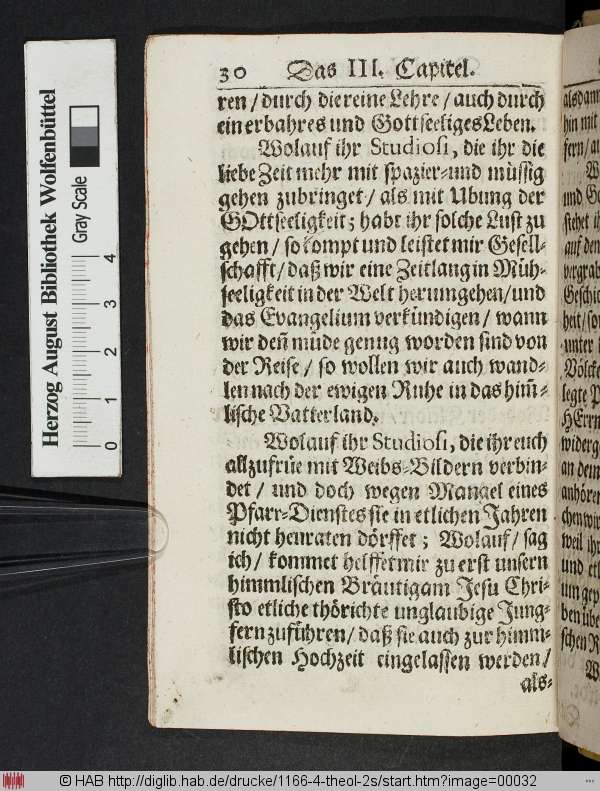 30 Das III. Capitel.
ren / durch die reine Lehre / auch durch
ein erbahres und Gottseeliges Leben.
Wolauf ihr Studiosi, die ihr die
liebe Zeit mehr mit spazier-und müssig
gehen zubringet / als mit Ubung der
GOttseeligkeit; habt ihr solche Lust zu
gehen / so kompt und leistet mir Gesell-
schafft / daß wir eine Zeitlang in Müh-
seeligkeit in der Welt herumgehen / und
das Evangelium verkündigen / wann
wir deñ müde genug worden sind von
der Reise / so wollen wir auch wand-
len nach der ewigen Ruhe in das him̃-
lische Vatterland.
Wolauf ihr Studiosi, die ihr euch
allzufrüe mit Weibs-Bildern verbin-
det / und doch wegen Mangel eines
Pfarr-Dienstes sie in etlichen Jahren
nicht heuraten dörffet; Wolauf / sag
ich / kommet helffet mir zu erst unsern
himmlischen Bräutigam Jesu Chri-
sto etliche thörichte unglaubige Jung-
fern zuführen / daß sie auch zur himm-
lischen Hochzeit eingelassen werden /
als-
alsdann
hin mit
fern / au
und Ge
stehet ih
auf den
vergrab
Geschic
heit / so
unter
Völcke
legte P
HErrn
widerg
an dem
anhören
chen wir
weil ihr
und etl
um gep
ben übe
schen R
Herzog August Bibliothek Wolfenbüttel
Gray Scale
0 1 2 3 4
© HAB http://diglib.hab.de/drucke/1166-4-theol-2s/start.htm?image=00032